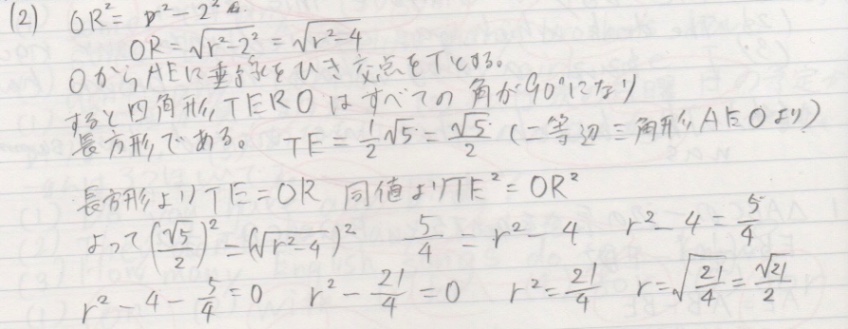 (2) OR² = r² - 2²
OR = √(r²-2²) = √(r²-4)
OからAEに垂線をひき交点をTとする。
すると四角形TEROはすべての角が90°になり
長方形である。 TE = 1/2 √5 = √5/2 (二等辺三角形AEOより)
長方形よりTE = OR 同値よりTE² = OR²
よって (√5/2)² = (√(r²-4))² 5/4 = r² - 4 r² - 4 = 5/4
r² - 4 - 5/4 = 0 r² - 21/4 = 0 r² = 21/4 r = √(21/4) = √21/2